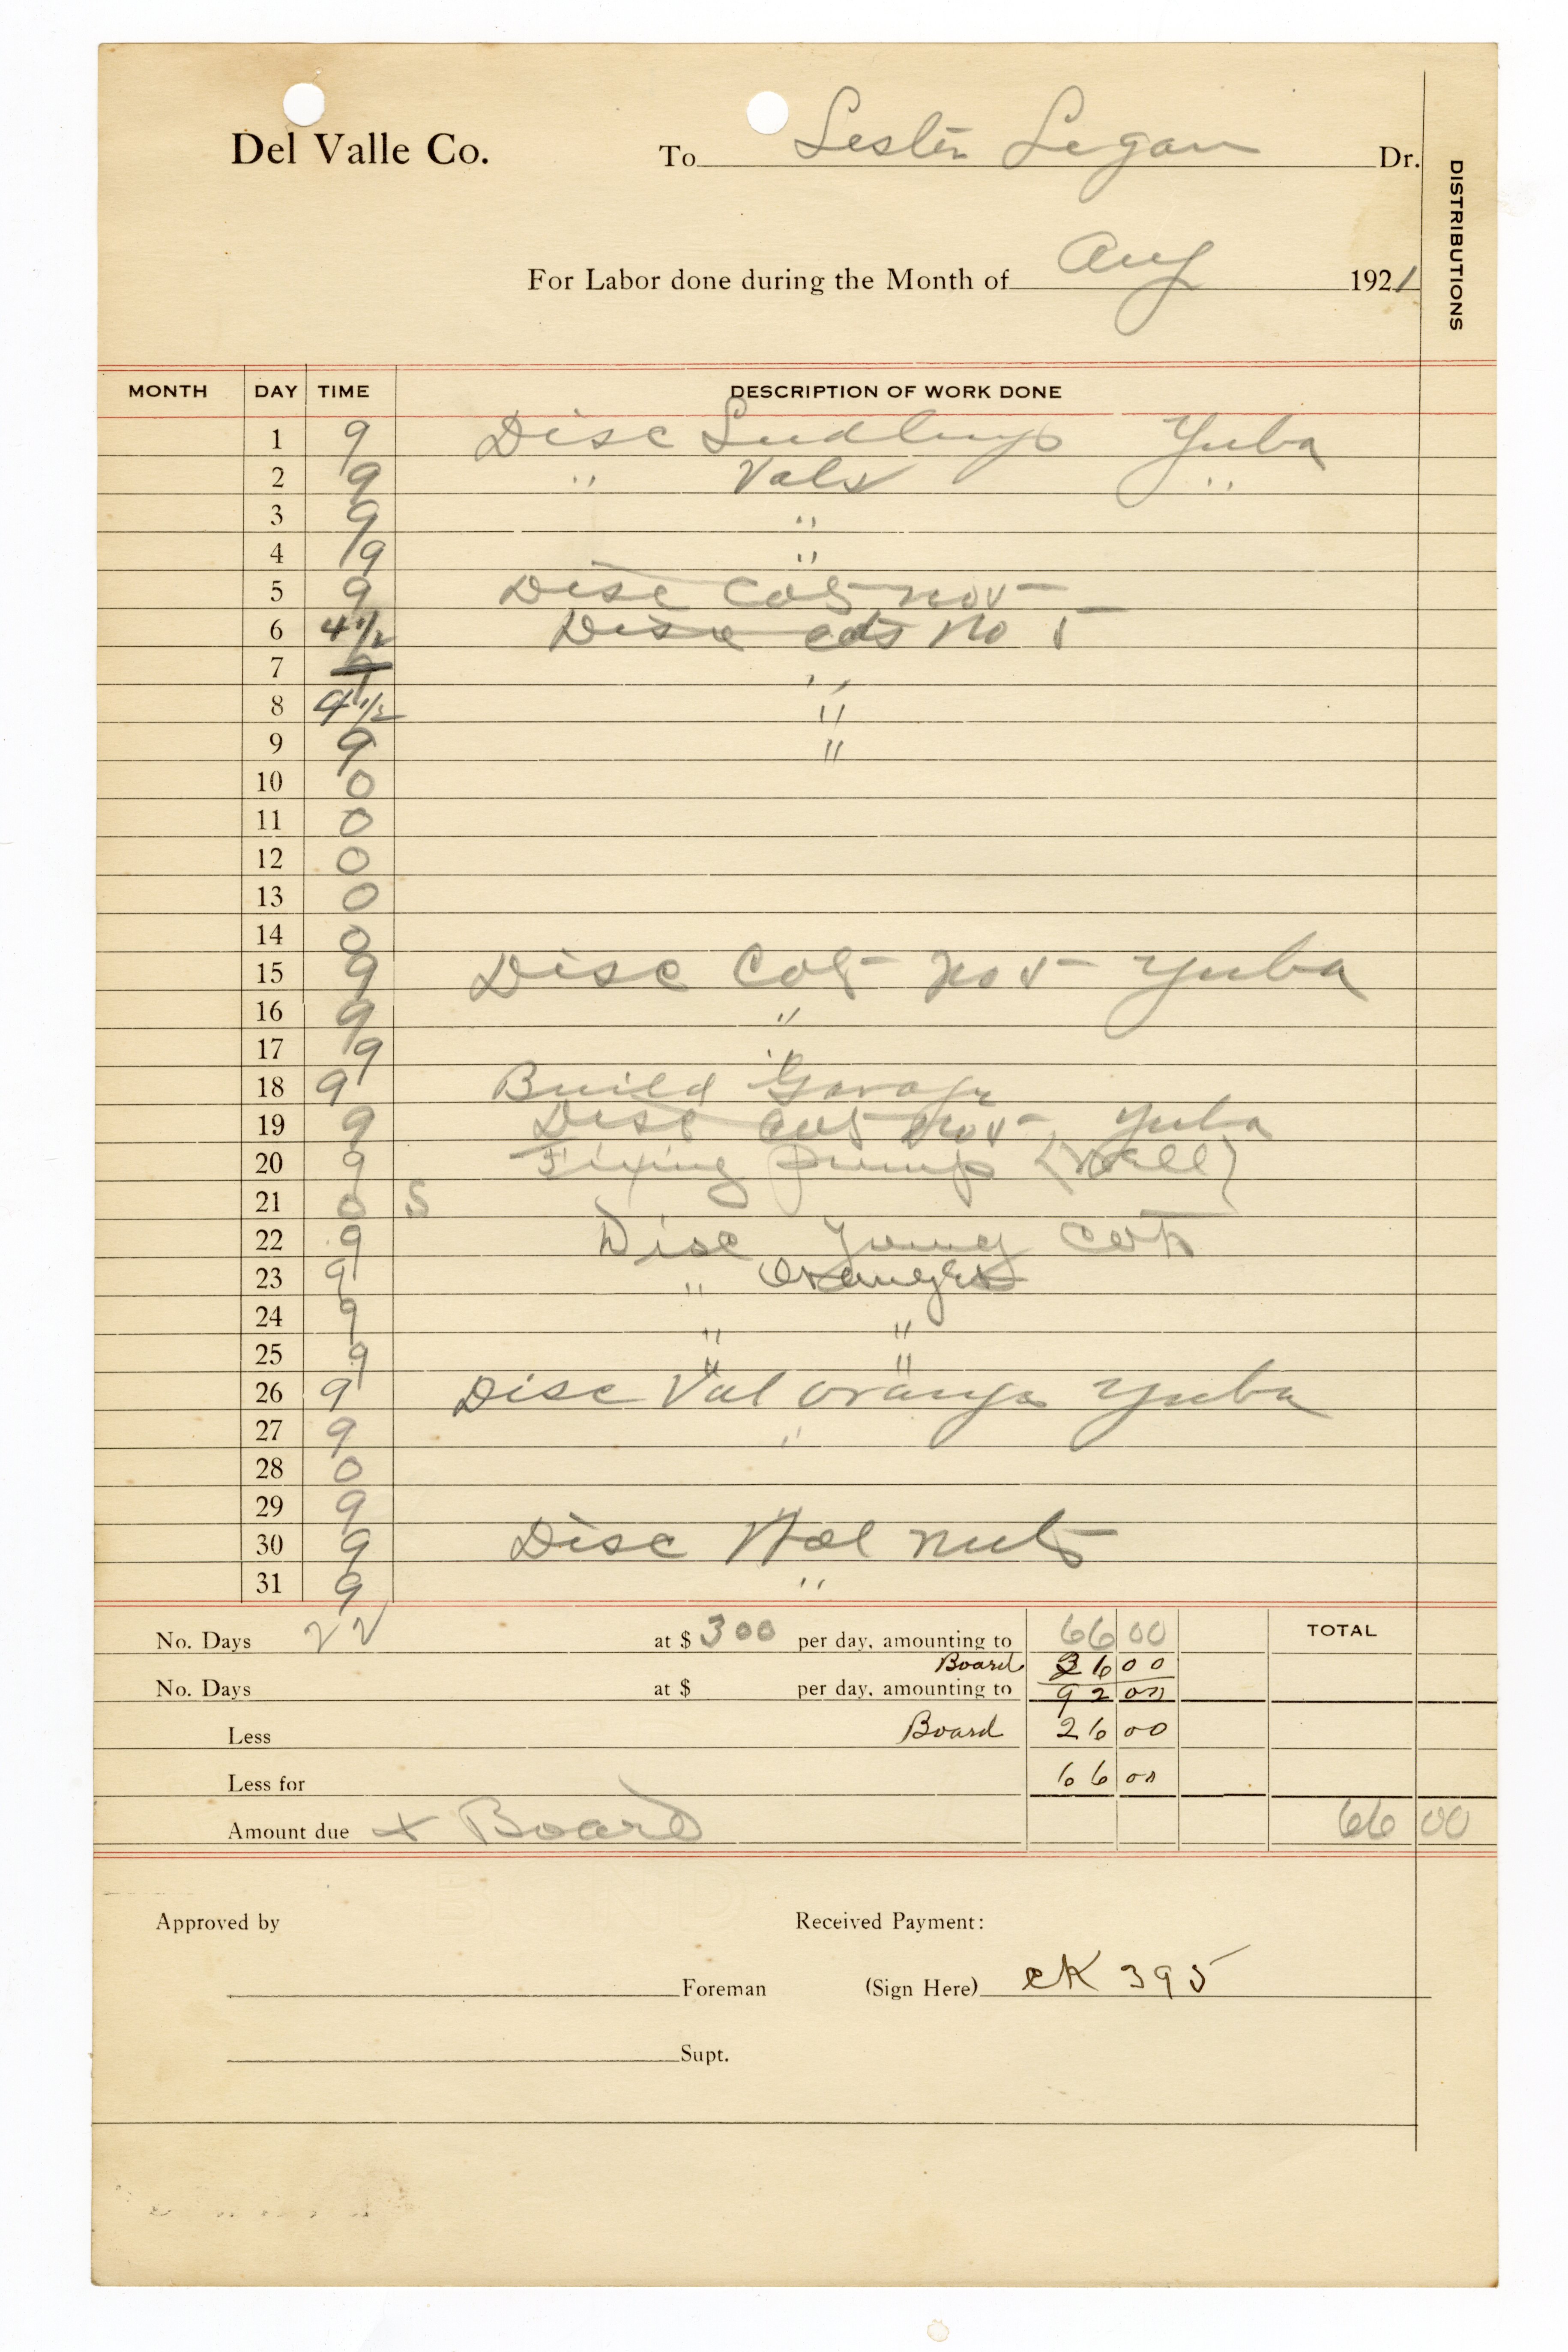 Del Valle Co. To Lester Legan Dr.
DISTRIBUTIONS
For Labor done during the Month of Aug 1921
MONTH DAY TIME DESCRIPTION OF WORK DONE
1 9 Disc Seedlings Yuba
2 9 " Vals "
3 9 "
4 9 "
5 9 Disc Cots No 5
6 4 1/2 Disc Cots No 5
7 9 "
8 4 1/2 "
9 9 "
10 0
11 0
12 0
13 0
14 0
15 9 Disc Cots No 5 Yuba
16 9 "
17 9 "
18 9 Build Garage
19 9 Disc Cots No 5 Yuba
20 9 Fixing pump (Well)
21 0 S
22 9 Disc Young Cots
23 9 " Oranges
24 9 " "
25 9 " "
26 9 Disc Val orange Yuba
27 9 "
28 0
29 9
30 9 Disc Wal nuts
31 9 "
No. Days 22 at $ 3 00 per day, amounting to 66 00 TOTAL
Board 26 00
No. Days at $ per day, amounting to 92 00
Less Board 26 00
Less for 66 00
Amount due + Board 66 00
Approved by Received Payment:
Foreman (Sign Here) CK 395
Supt.